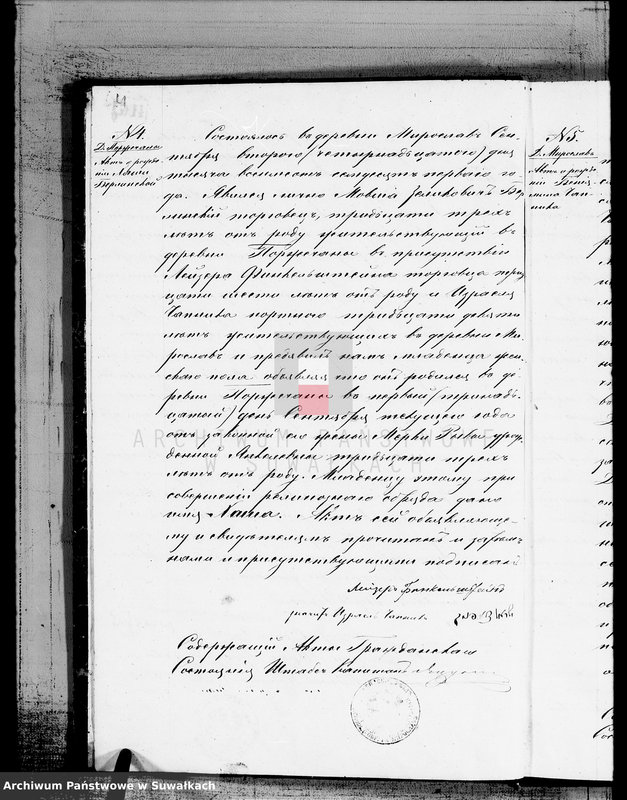 4
N 4.
Актъ о рожде-
ніи Хашы
Берлинской
Состоялось въ деревни Мирославъ Сен-
тября второго (четырнадцатаго) дня
тысяча восемсотъ семдесятъ перваго го-
да. Явился лично Мовша Зеликовичъ Бер-
линскій торговецъ, тридцати трехъ
лѣтъ отъ роду жительствующій въ
деревни въ присутствіи
Лейзера Финкельштейна торговца трид-
цати шести лѣтъ отъ роду и Израеля
Чапника портного тридцати девяти
лѣтъ жительствующихъ въ деревни Ми-
рославъ и предъявилъ намъ младенца жен-
скаго пола объявляя что онъ родился въ де-
ревни въ первый (тринадц-
цатый) день Сентября текущего года
отъ законной его жены Мерки Ривки урож-
денной тридцати трехъ
лѣтъ отъ роду. Младенцу этому при
совершеніи религіознаго обряда дано
имя Хаша. Актъ сей объявляюще-
му и свидѣтелямъ прочитанъ и
нами и присутствующими подписанъ
Лейзеръ Финкельштейнъ
Израель Чапникъ
Содержащій Акты Гражданскаго
Состоянія Штабсъ Капитанъ
N 5.
Д. Мирославъ
Актъ о рожде-
ніи Бенья-
мина Чап-
ника
ARCHIWUM PAŃSTWOWE
W SUWAŁKACH
Archiwum Państwowe w Suwałkach